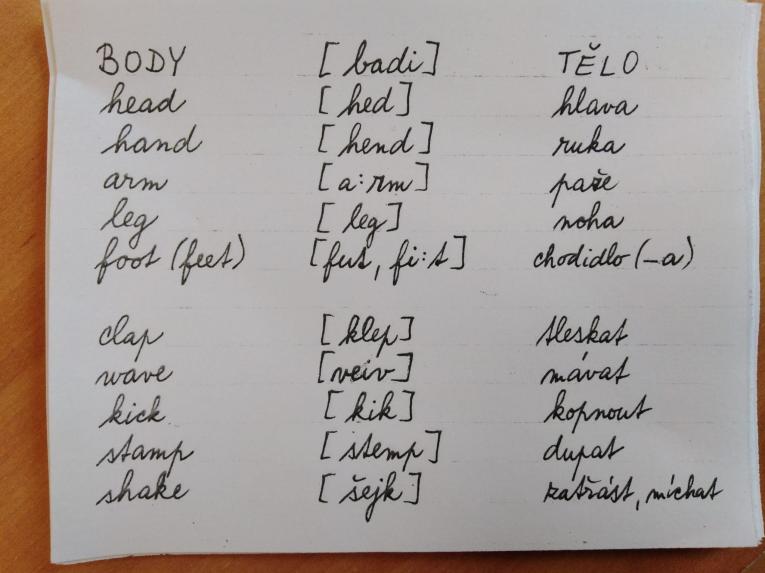 BODY [badi] TĚLO
head [hed] hlava
hand [hend] ruka
arm [a:rm] paže
leg [leg] noha
foot (feet) [fut, fi:t] chodidlo (-a)
clap [klep] tleskat
wave [veiv] mávat
kick [kik] kopnout
stamp [stemp] dupat
shake [šejk] zatřást, míchat